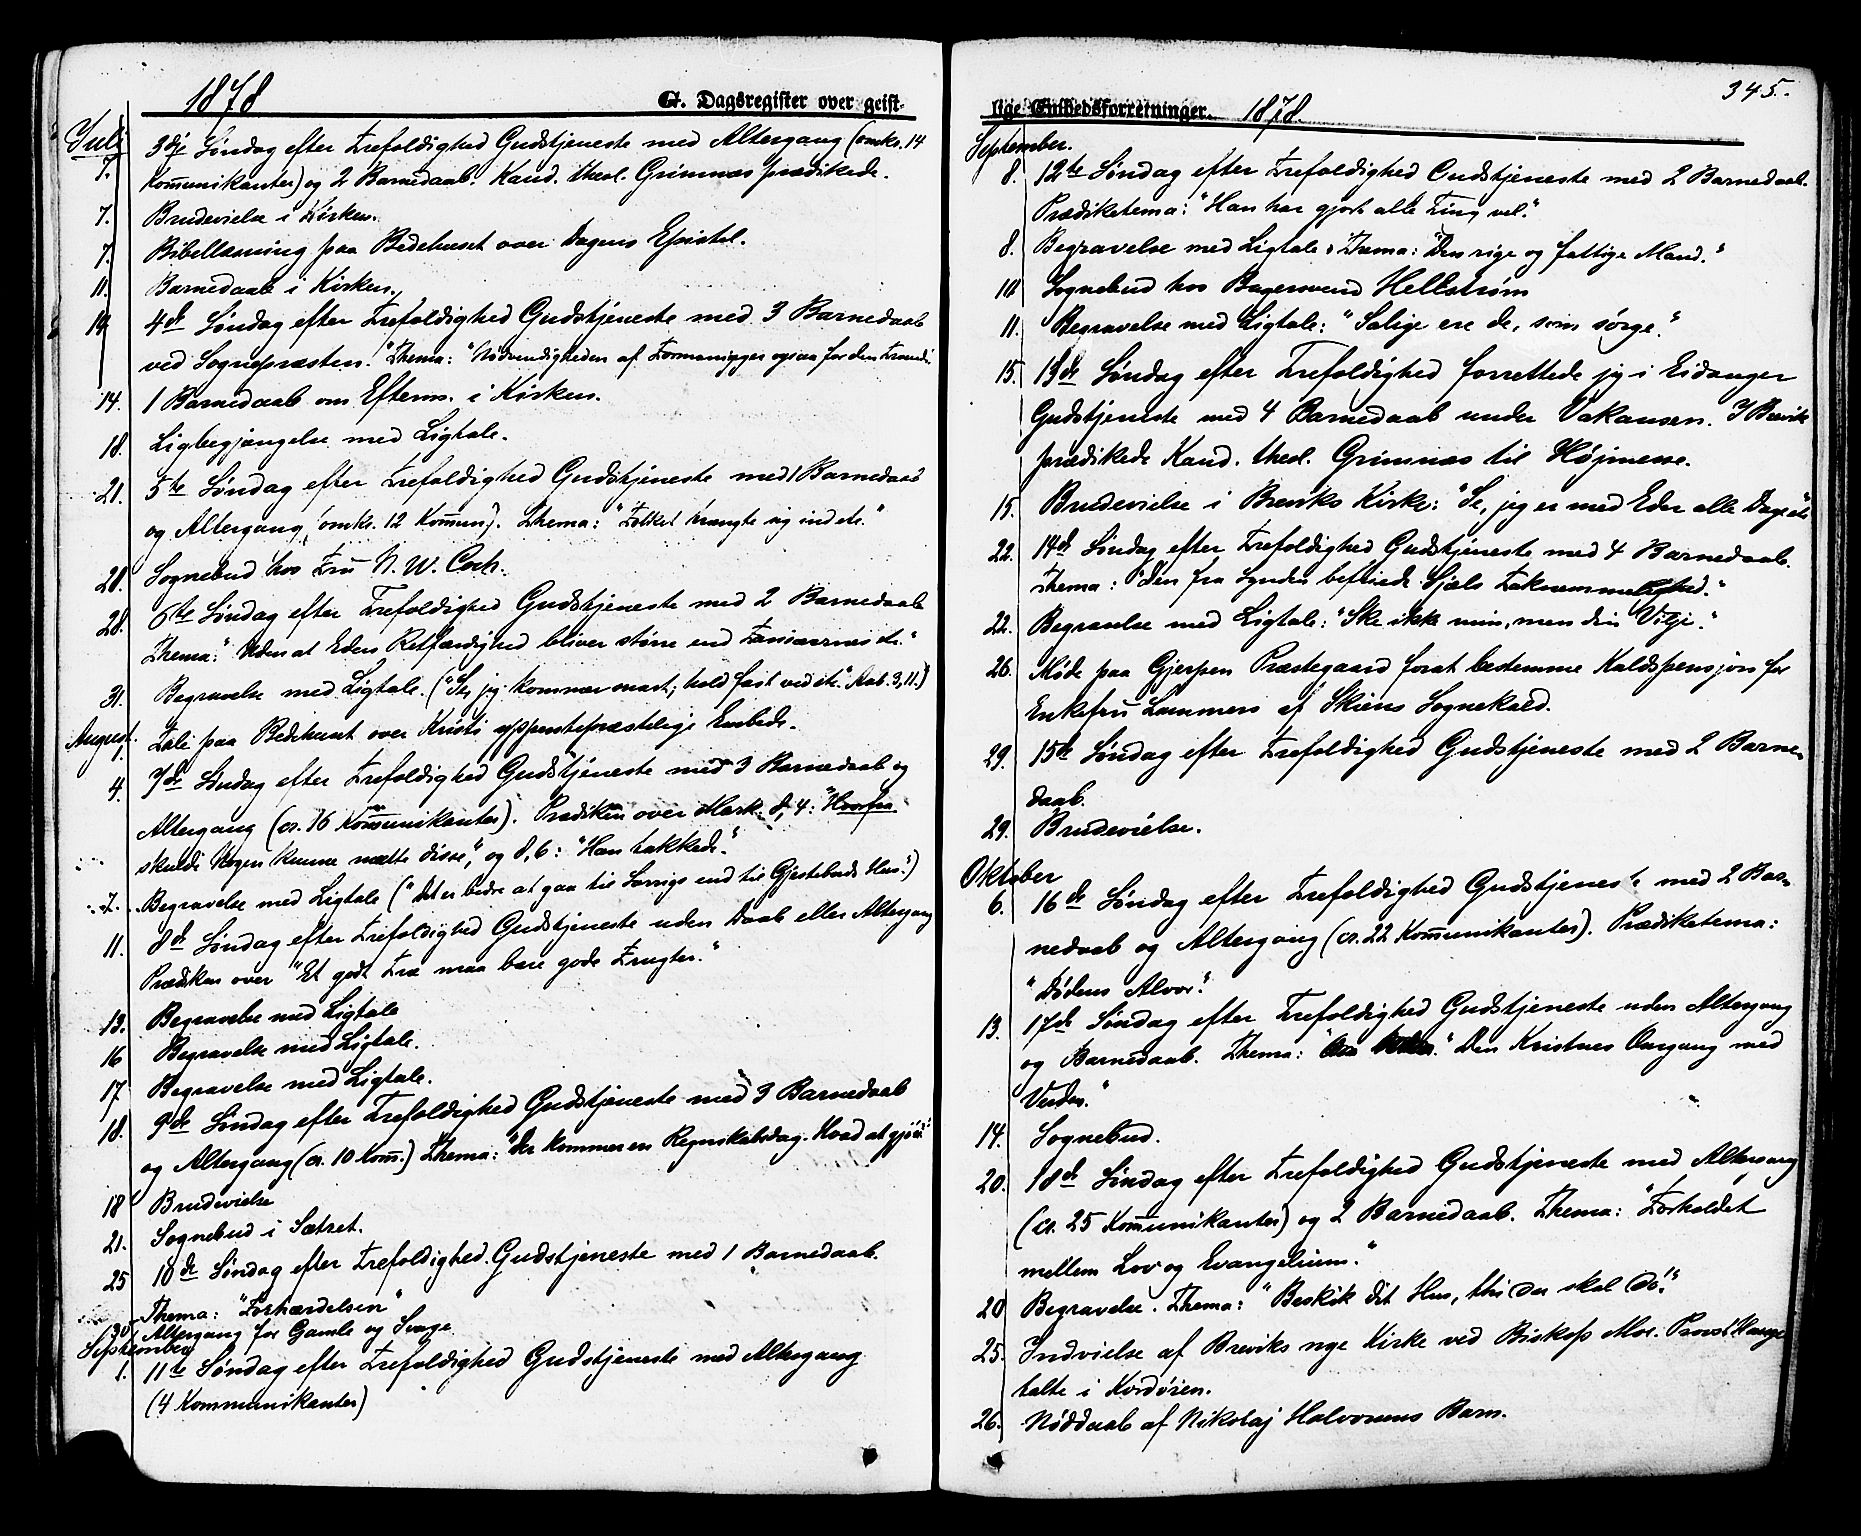 1878
G. Dagsregister over geist-
Juli
7. 3die Søndag efter Trefoldighed Gudstjeneste med Altergang (omkr. 14
Kommunikanter) og 2 Barnedaab. Kand. theol. Grimnæs prædikede.
7. Brudevielse i Kirken.
7. Bibellæsning paa Bedehuset over Dagens Epistel.
11. Barnedaab i Kirken.
14. 4de Søndag efter Trefoldighed Gudstjeneste med 3 Barnedaab
ved Sognepræsten. Thema: "Nødvendigheden af Formaninger ogsaa for den
14. 1 Barnedaab om Efterm. i Kirken.
18. Ligbegjængelse med Ligtale.
21. 5te Søndag efter Trefoldighed Gudstjeneste med 1 Barnedaab
og Altergang (omkr. 12 Kommun.). Thema: "Folket trængte sig ind etc."
28. Sognebud hos Fru N. W. Coch.
28. 6te Søndag efter Trefoldighed Gudstjeneste med 2 Barnedaab
Thema: "Uden at Eders Retfærdighed bliver større end Farisæernes etc."
31. Begravelse med Ligtale. ("Se, jeg kommer snart; hold fast ved etc." Aab. 3,11.)
August.
1. Tale paa Bedehuset over Kristi ypperstepræstelige Embede.
4. 7de Søndag efter Trefoldighed Gudstjeneste med 3 Barnedaab og
Altergang (cr. 16 Kommunikanter). Prædiken over Mark. 8, 4: "Hvorfra
skulde Nogen kunne mætte disse", og 8, 6: "Han takkede."
7. Begravelse med Ligtale ("Det er bedre at gaa til Sorrigs end til Gjestebuds Hus.")
11. 8de Søndag efter Trefoldighed Gudstjeneste uden Daab eller Altergang
Prædiken over "Et godt Træ maa bære gode Frugter."
13. Begravelse med Ligtale
16 Begravelse med Ligtale.
17 Begravelse med Ligtale.
18. 9de Søndag efter Trefoldighed Gudstjeneste med 3 Barnedaab
og Altergang (cr. 10 Komm.) Thema: "Der kommer en Regnskabsdag. Hvad at gjøre?"
18 Brudevielse
21. Sognebud i Sætret.
25 10de Søndag efter Trefoldighed. Gudstjeneste med 1 Barnedaab.
Thema: "Forhærdelsen"
30 Altergang for Gamle og Svage
September
1. 11te Søndag efter Trefoldighed Gudstjeneste med Altergang
(4 Kommunikanter)
345.
lige Embedsforretninger. 1878.
September.
8. 12te Søndag efter Trefoldighed Gudstjeneste med 2 Barnedaab.
Prædiketema: "Han har gjort alle Ting vel."
8. Begravelse med Ligtale: Thema: "Den rige og fattige Mand."
11 Sognebud hos Bagersvend Hellstrøm
11. Begravelse med Ligtale: "Salige ere de, som sørge."
15. 13de Søndag efter Trefoldighed forrettede jeg i Eidanger
Gudstjeneste med 4 Barnedaab under Vakansen. I Brevik
prædikede Kand. theol. Grimnæs til Højmesse.
15. Brudevielse i Breviks Kirke: "Se, jeg er med Eder alle Dage etc"
22. 14de Søndag efter Trefoldighed Gudstjeneste med 4 Barnedaab.
Thema: "Den fra Synden befriede Sjæls Taknemmelighed."
22. Begravelse med Ligtale: "Ske ikke min, men din Vilje."
26. Møde paa Gjerpen Præstegaard forat bestemme Kaldspensjon for
Enkefru Lammers af Skiens Sognekald.
29. 15de Søndag efter Trefoldighed Gudstjeneste med 2 Barne-
daab.
29. Brudevielse.
Oktober
6. 16de Søndag efter Trefoldighed Gudstjeneste med 2 Bar-
nedaab og Altergang (cr. 22 Kommunikanter). Prædiketema:
"Dødens Alvor."
13. 17de Søndag efter Trefoldighed Gudstjeneste uden Altergang
og Barnedaab. Thema: "Den Kristnes Omgang med
Verden."
14. Sognebud.
20. 18de Søndag efter Trefoldighed Gudstjeneste med Altergang
(cr. 25 Kommunikanter) og 2 Barnedaab. Thema: "Forholdet
mellem Lov og Evangelium."
20 Begravelse. Thema: "Beskik dit Hus, thi Du skal dø!"
25. Indvielse af Breviks nye Kirke ved Biskop Moe. Provst
talte i Kordøren.
26. Nøddaab af Nikolaj Halvorsens Barn.